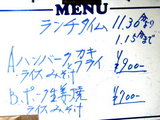 MENU
ランチタイム 11.30より
1.15まで
A.ハンバーグ、カキフライ
ライス、みそ汁 ¥900-
B.ポーク生姜焼
ライスみそ汁 ¥900-